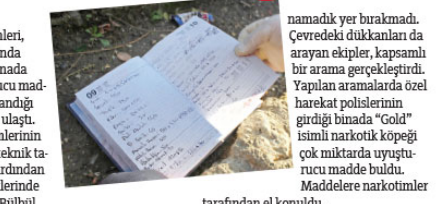 nleri,
nda
nada
ucu mad-
andığı
ulaştı.
nlerinin
teknik ta-
rdından
lerinde
Bülbül
09
namadık yer bırakmadı.
Çevredeki dükkanları da
arayan ekipler, kapsamlı
bir arama gerçekleştirdi.
Yapılan aramalarda özel
harekat polislerinin
girdiği binada “Gold”
isimli narkotik köpeği
çok miktarda uyuştu-
rucu madde buldu.
Maddelere narkotimler
tarafından el konuldu